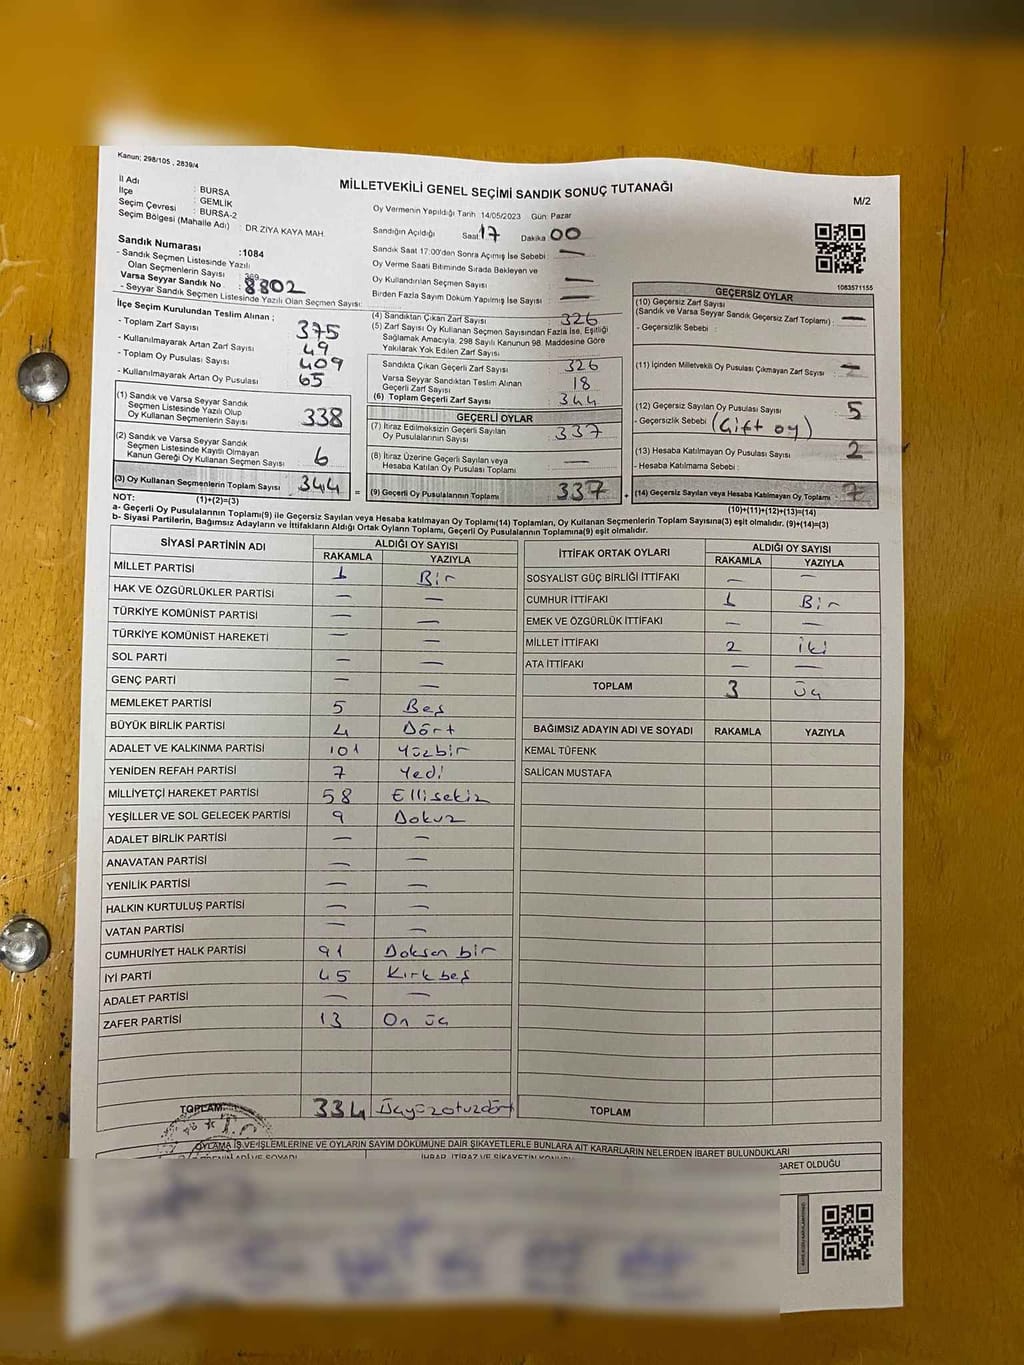 Kanun; 298/105 , 2839/4
MİLLETVEKİLİ GENEL SEÇİMİ SANDIK SONUÇ TUTANAĞI
M/2
İl Adı : BURSA
İlçe : GEMLİK
Seçim Çevresi : BURSA-2
Seçim Bölgesi (Mahalle Adı) : DR.ZIYA KAYA MAH
Sandık Numarası :1084
- Sandık Seçmen Listesinde Yazılı
Olan Seçmenlerin Sayısı : 369
Varsa Seyyar Sandık No : 8802
- Seyyar Sandık Seçmen Listesinde Yazılı Olan Seçmen Sayısı:
Oy Vermenin Yapıldığı Tarih 14/05/2023 Gün: Pazar
Sandığın Açıldığı Saat 17 Dakika 00
Sandık Saat 17:00'den Sonra Açımış İse Sebebi : —
Oy Verme Saati Bitiminde Sırada Bekleyen ve
Oy Kullandırılan Seçmen Sayısı : —
Birden Fazla Sayım Döküm Yapılmış İse Sayısı : —
1083571155
İlçe Seçim Kurulundan Teslim Alınan ;
- Toplam Zarf Sayısı : 375
- Kullanılmayarak Artan Zarf Sayısı : 49
- Toplam Oy Pusulası Sayısı : 409
- Kullanılmayarak Artan Oy Pusulası : 65
(1) Sandık ve Varsa Seyyar Sandık
Seçmen Listesinde Yazılı Olup
Oy Kullanan Seçmenlerin Sayısı : 338
(2) Sandık ve Varsa Seyyar Sandık
Seçmen Listesinde Kayıtlı Olmayan
Kanun Gereği Oy Kullanan Seçmen Sayısı : 6
(3) Oy Kullanan Seçmenlerin Toplam Sayısı : 344
(1)+(2)=(3)
(4) Sandıktan Çıkan Zarf Sayısı : 326
(5) Zarf Sayısı Oy Kullanan Seçmen Sayısından Fazla İse, Eşitliği
Sağlamak Amacıyla, 298 Sayılı Kanunun 98. Maddesine Göre
Yakılarak Yok Edilen Zarf Sayısı :
Sandıkta Çıkan Geçerli Zarf Sayısı : 326
Varsa Seyyar Sandıktan Teslim Alınan
Geçerli Zarf Sayısı : 18
(6) Toplam Geçerli Zarf Sayısı : 344
GEÇERLİ OYLAR
(7) İtiraz Edilmeksizin Geçerli Sayılan
Oy Pusulalarının Sayısı : 337
(8) İtiraz Üzerine Geçerli Sayılan veya
Hesaba Katılan Oy Pusulası Toplamı : —
= (9) Geçerli Oy Pusulalarının Toplamı : 337
GEÇERSİZ OYLAR
(10) Geçersiz Zarf Sayısı
(Sandık ve Varsa Seyyar Sandık Geçersiz Zarf Toplamı) : —
- Geçersizlik Sebebi :
(11) İçinden Milletvekili Oy Pusulası Çıkmayan Zarf Sayısı :
(12) Geçersiz Sayılan Oy Pusulası Sayısı : 5
- Geçersizlik Sebebi : (Çift oy)
(13) Hesaba Katılmayan Oy Pusulası Sayısı : 2
- Hesaba Katılmama Sebebi :
+ (14) Geçersiz Sayılan veya Hesaba Katılmayan Oy Toplamı : 7
(10)+(11)+(12)+(13)=(14)
NOT:
a- Geçerli Oy Pusulalarının Toplamı(9) ile Geçersiz Sayılan veya Hesaba katılmayan Oy Toplamı(14) Toplamları, Oy Kullanan Seçmenlerin Toplam Sayısına(3) eşit olmalıdır. (9)+(14)=(3)
b- Siyasi Partilerin, Bağımsız Adayların ve İttifakların Aldığı Ortak Oyların Toplamı, Geçerli Oy Pusulalarının Toplamına(9) eşit olmalıdır.
SİYASİ PARTİNİN ADI ALDIĞI OY SAYISI
RAKAMLA YAZIYLA
MİLLET PARTİSİ 1 Bir
HAK VE ÖZGÜRLÜKLER PARTİSİ — —
TÜRKİYE KOMÜNİST PARTİSİ — —
TÜRKİYE KOMÜNİST HAREKETİ — —
SOL PARTİ — —
GENÇ PARTİ — —
MEMLEKET PARTİSİ 5 Beş
BÜYÜK BİRLİK PARTİSİ 4 Dört
ADALET VE KALKINMA PARTİSİ 101 Yüzbir
YENİDEN REFAH PARTİSİ 7 Yedi
MİLLİYETÇİ HAREKET PARTİSİ 58 Ellisekiz
YEŞİLLER VE SOL GELECEK PARTİSİ 9 Dokuz
ADALET BİRLİK PARTİSİ — —
ANAVATAN PARTİSİ — —
YENİLİK PARTİSİ — —
HALKIN KURTULUŞ PARTİSİ — —
VATAN PARTİSİ — —
CUMHURİYET HALK PARTİSİ 91 Doksan bir
İYİ PARTİ 45 Kırk beş
ADALET PARTİSİ — —
ZAFER PARTİSİ 13 On üç
TOPLAM 334 Üçyüzotuzdört
İTTİFAK ORTAK OYLARI ALDIĞI OY SAYISI
RAKAMLA YAZIYLA
SOSYALİST GÜÇ BİRLİĞİ İTTİFAKI — —
CUMHUR İTTİFAKI 1 Bir
EMEK VE ÖZGÜRLÜK İTTİFAKI — —
MİLLET İTTİFAKI 2 iki
ATA İTTİFAKI — —
TOPLAM 3 üç
BAĞIMSIZ ADAYIN ADI VE SOYADI RAKAMLA YAZIYLA
KEMAL TÜFENK
SALİCAN MUSTAFA
TOPLAM
OYLAMA İŞ VE İŞLEMLERİNE VE OYLARIN SAYIM DÖKÜMÜNE DAİR ŞİKAYETLERLE BUNLARA AİT KARARLARIN NELERDEN İBARET BULUNDUKLARI
İHBAR, İTİRAZ VE ŞİKAYETİN KONUSU
BARET OLDUĞU